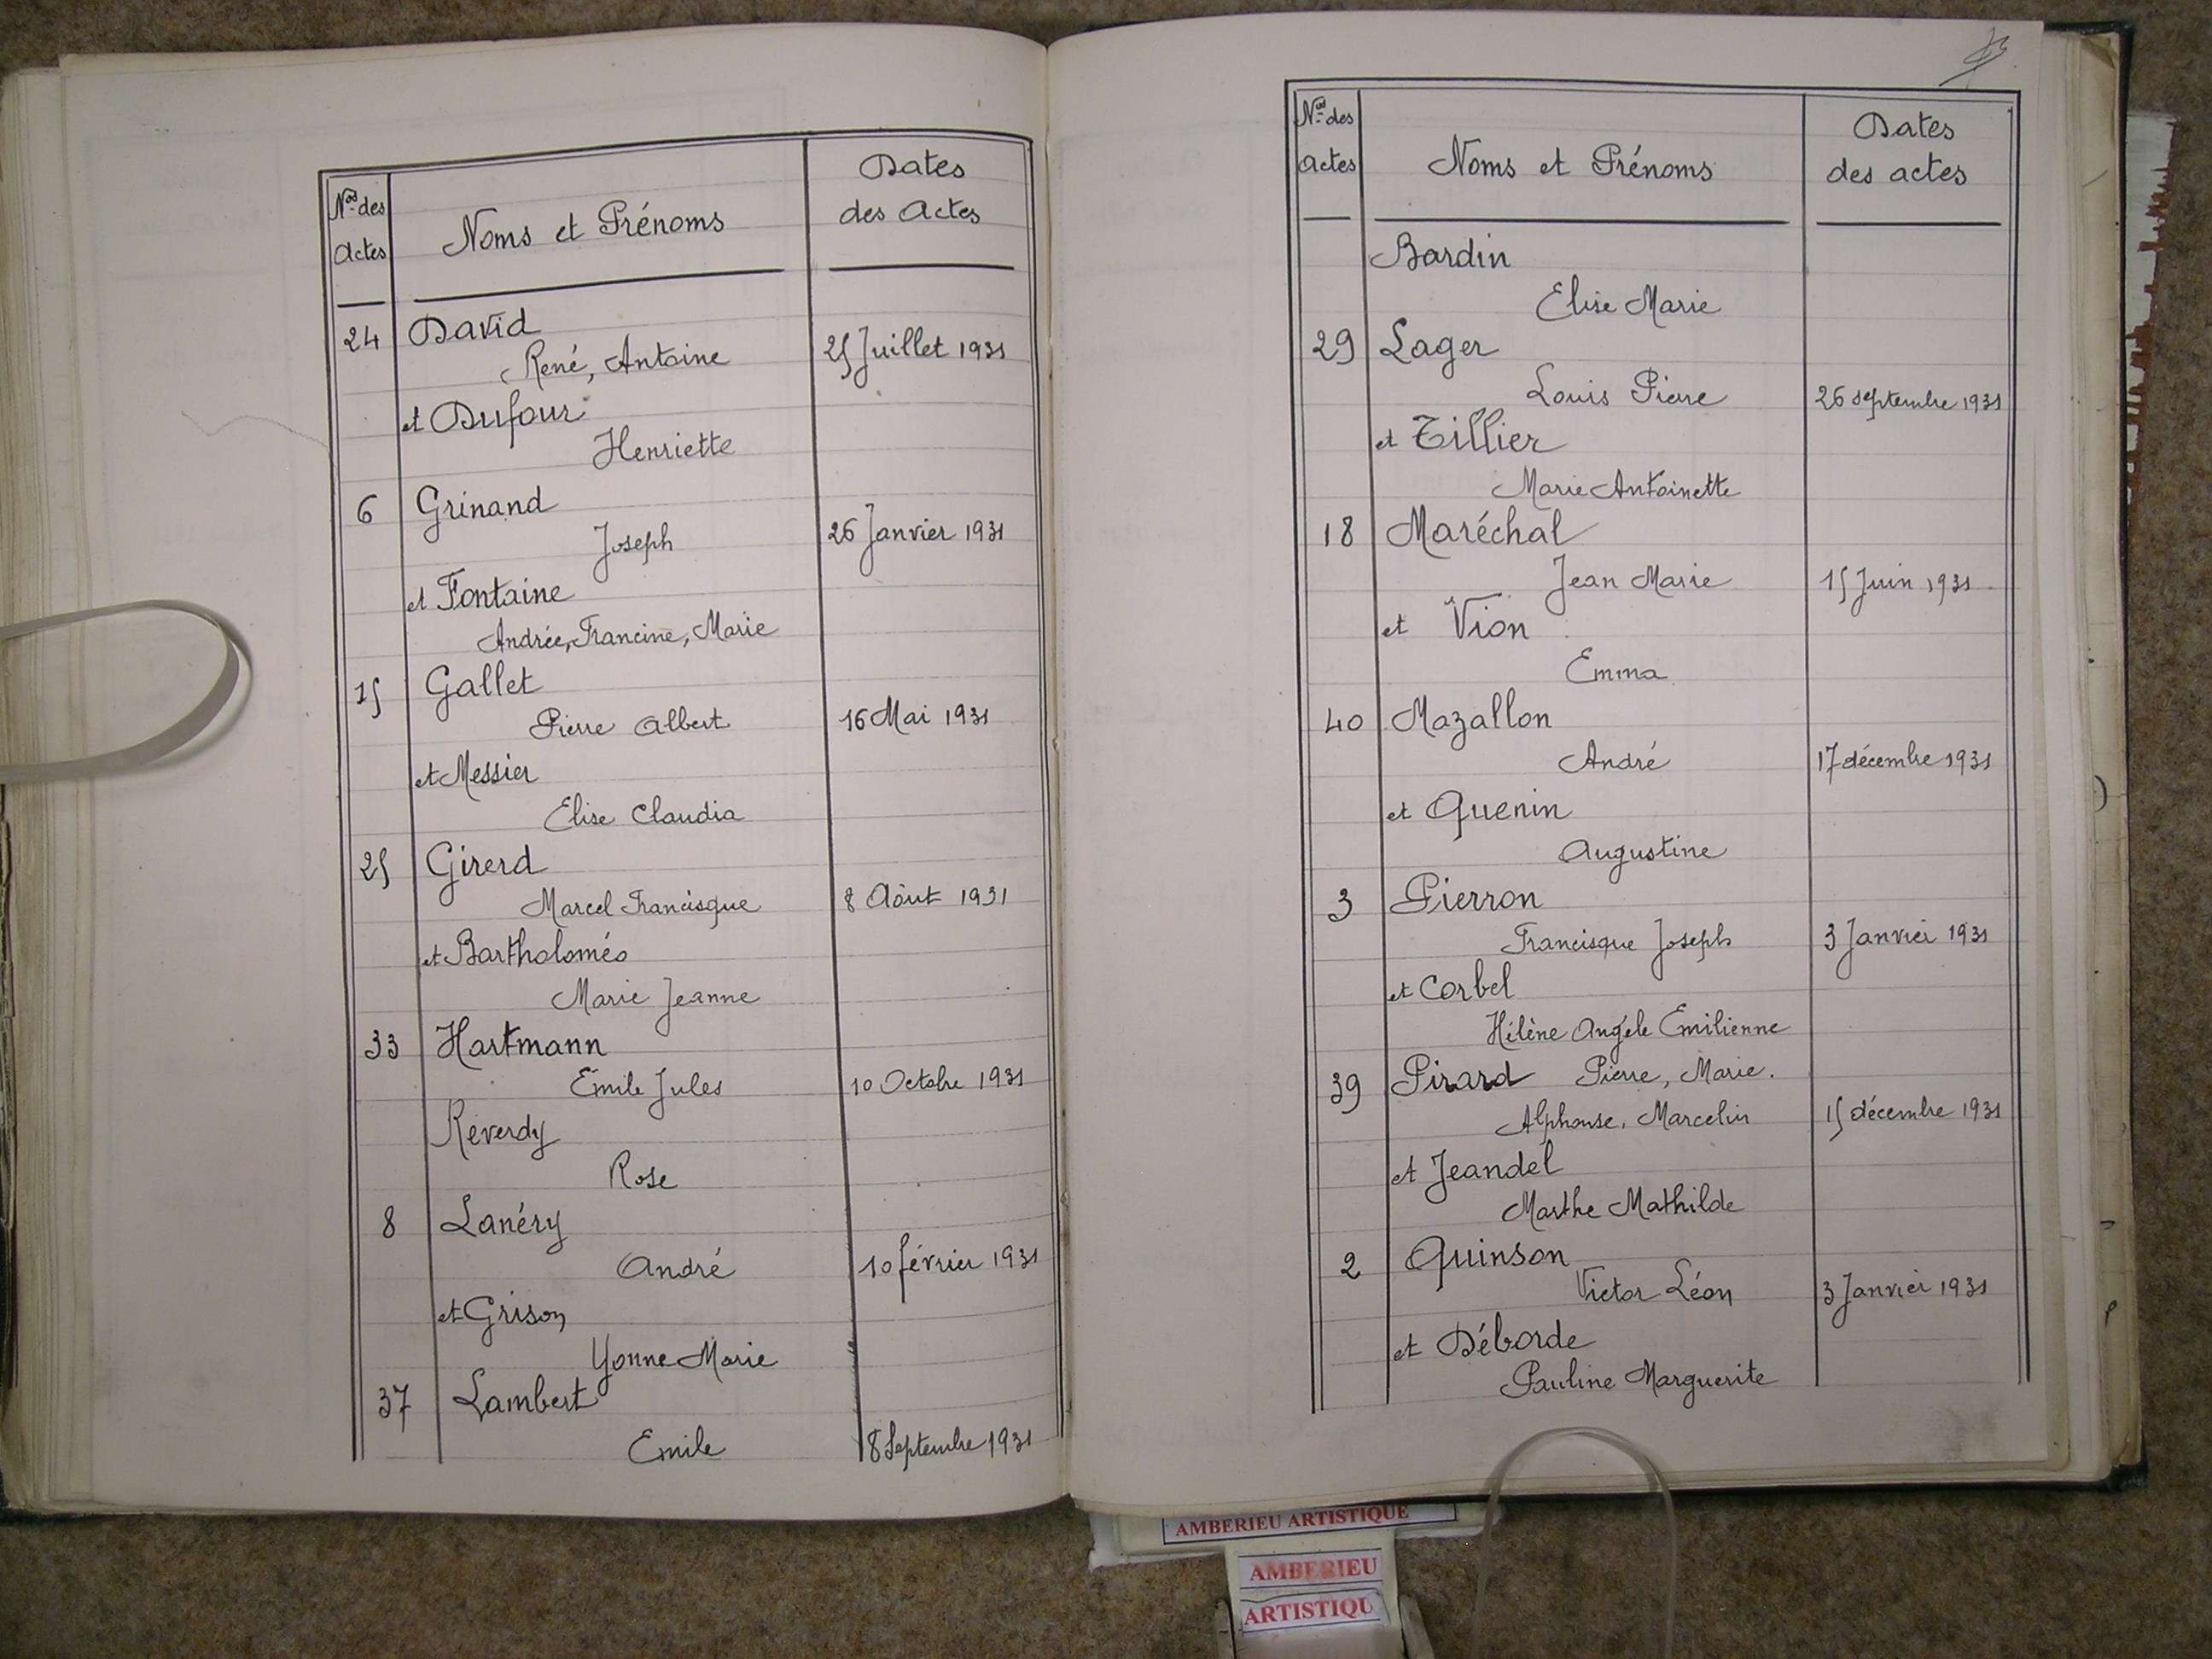 Nos des
Actes
Noms et Prénoms
Dates
des Actes
24 David
René, Antoine 25 Juillet 1931
et Dufour
Henriette
6 Grinand
Joseph 26 Janvier 1931
et Fontaine
Andrée, Francine, Marie
15 Gallet
Pierre Albert 16 Mai 1931
et Messier
Elise Claudia
25 Girerd
Marcel Francisque 8 Aôut 1931
et Bartholoméo
Marie Jeanne
33 Hartmann
Emile Jules 10 Octobre 1931
Réverdy
Rose
8 Lanéry
André 10 février 1931
et Grison
Yonne Marie
37 Lambert
Emile 8 Septembre 1931
Nos des
actes
Noms et Prénoms
Dates
des actes
Bardin
Elise Marie
29 Lager
Louis Pierre 26 septembre 1931
et Tillier
Marie Antoinette
18 Maréchal
Jean Marie 15 Juin 1931
et Vion
Emma
40 Mazallon
André 17 décembre 1931
et Quenin
Augustine
3 Pierron
Francisque Joseph 3 Janvier 1931
et Corbel
Hélène Angèle Emilienne
39 Pirard Pierre, Marie.
Alphonse, Marcelin 15 décembre 1931
et Jeandel
Marthe Mathilde
2 Quinson
Victor Léon 3 Janvier 1931
et Déborde
Pauline Marguerite
AMBERIEU ARTISTIQUE
AMBERIEU
ARTISTIQU